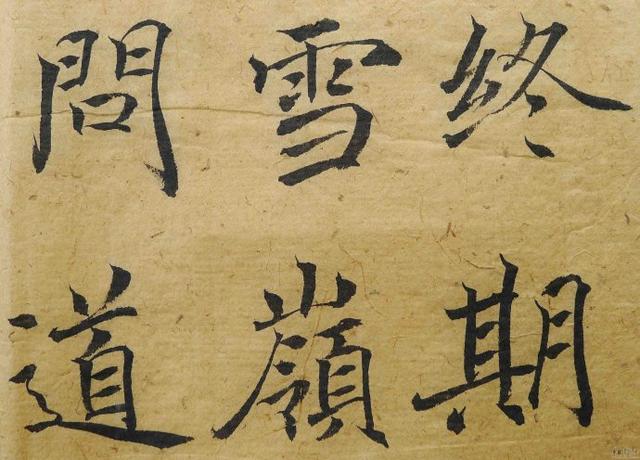 終期
雪嶺
問道